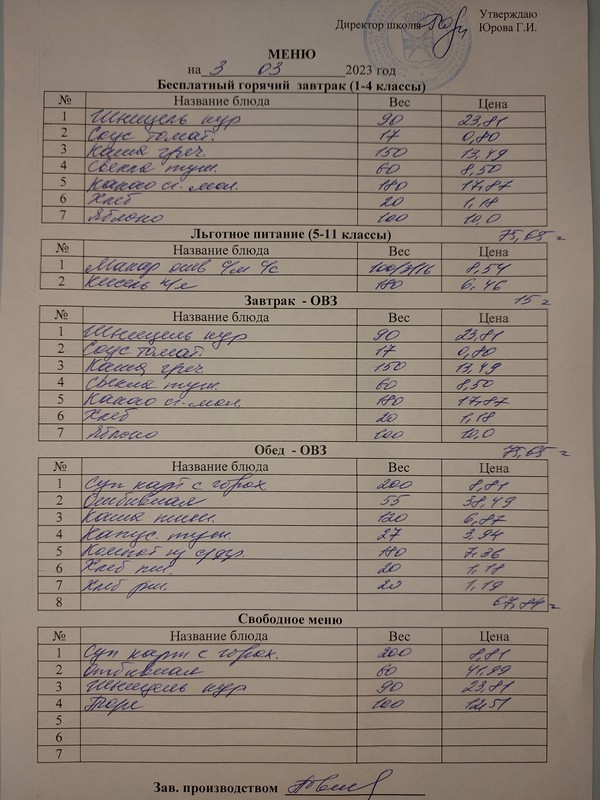 Утверждаю
Директор школы Юрова Г.И.
МЕНЮ
на 3 03 2023 год
Бесплатный горячий завтрак (1-4 классы)
№ Название блюда Вес Цена
1 Шницель кур 90 23,81
2 Соус томат. 17 0,80
3 Каша греч. 150 13,49
4 Свекла туш. 60 8,50
5 Какао сг. мол. 180 17,87
6 Хлеб 20 1,18
7 Яблоко 100 10,0
Льготное питание (5-11 классы) 75,65 =
№ Название блюда Вес Цена
1 Макар 8,54
2 Кисель 180 6,46
Завтрак - ОВЗ 15 =
№ Название блюда Вес Цена
1 Шницель кур 90 23,81
2 Соус томат. 17 0,80
3 Каша греч 150 13,49
4 Свекла туш. 60 8,50
5 Какао сг. мол. 180 17,87
6 Хлеб 20 1,18
7 Яблоко 100 10,0
Обед - ОВЗ 75,65 =
№ Название блюда Вес Цена
1 Суп карт с горох. 200 8,81
2 Отбивная 55 38,49
3 Каша пшен. 120 6,87
4 Капус. туш. 27 3,94
5 Компот 180 7,36
6 Хлеб пш. 20 1,18
7 Хлеб рж. 20 1,19
8 67,84 =
Свободное меню
№ Название блюда Вес Цена
1 Суп карт с горох. 200 8,81
2 Отбивная 60 41,99
3 Шницель кур 90 23,81
4 Пюре 100 12,51
5
6
7
Зав. производством